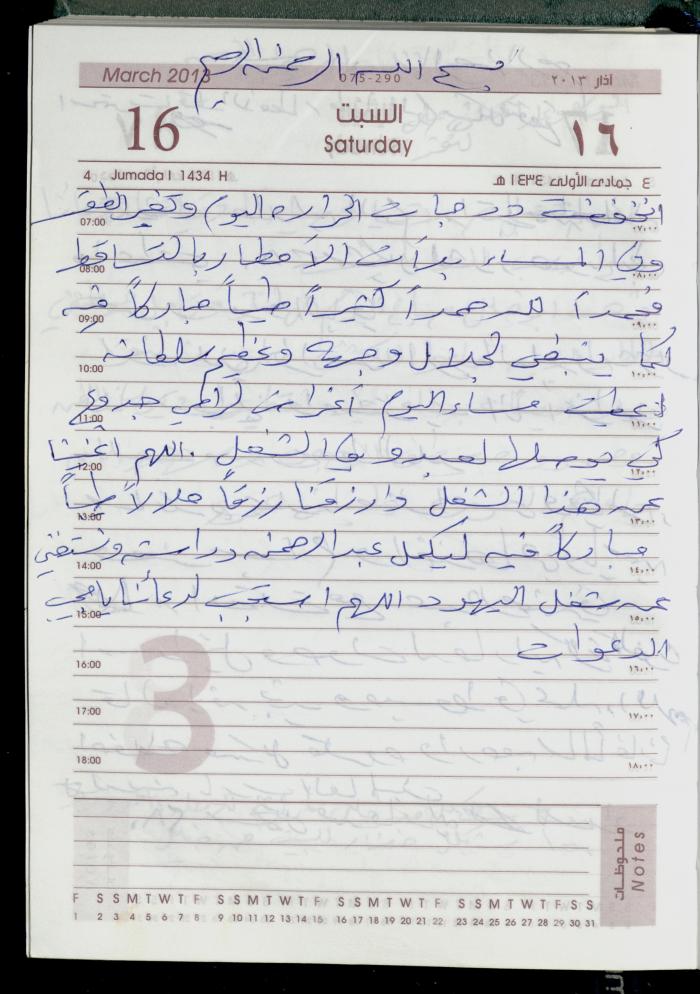 بسم الله الرحمن الرحيم
March 2013 075-290 آذار ٢٠١٣
16 السبت ١٦
Saturday
4 Jumada I 1434 H ٤ جمادى الأولى ١٤٣٤ هـ
انخفضت درجات الحراره اليوم وتغير الطقس
07:00 ٠٧,٠٠
وفي المساء بدأت الأمطار بالتساقط
08:00 ٠٨,٠٠
فحمداً لله حمداً كثيراً طيباً مباركاً فيه
09:00 ٠٩,٠٠
كما ينبغي لجلال وجهه وعظيم سلطانه
10:00 ١٠,٠٠
مساء اليوم أغراض
11:00 ١١,٠٠
كي يوصلها لعبدو في الشغل . اللهم اغننا
12:00 ١٢,٠٠
عن هذا الشغل وارزقنا رزقاً حلالاً طيباً
13:00 ١٣,٠٠
مباركاً فيه ليكمل عبدالرحمن دراسته ونستغني
14:00 ١٤,٠٠
عن شغل اليهود اللهم استجب لدعائنا يا مجيب
15:00 ١٥,٠٠
الدعوات
16:00 ١٦,٠٠
17:00 ١٧,٠٠
18:00 ١٨,٠٠
3
ملحوظات
Notes
F S S M T W T F S S M T W T F S S M T W T F S S M T W T F S S
1 2 3 4 5 6 7 8 9 10 11 12 13 14 15 16 17 18 19 20 21 22 23 24 25 26 27 28 29 30 31